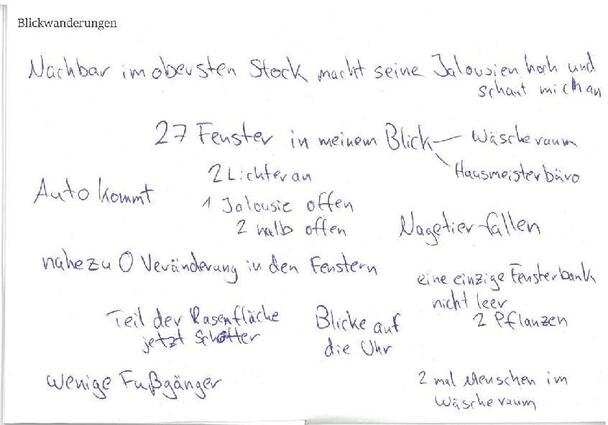 Blickwanderungen
Nachbar im obersten Stock macht seine Jalousien hoch und
schaut mich an
27 Fenster in meinem Blick — Wäscheraum
Hausmeisterbüro
2 Lichter an
Auto kommt
1 Jalousie offen
2 halb offen
Nagetier-fallen
nahezu 0 Veränderung in den Fenstern
eine einzige Fensterbank
nicht leer
2 Pflanzen
Teil der Rasenfläche
jetzt Schotter
Blicke auf
die Uhr
wenige Fußgänger
2 mal Menschen im
Wäscheraum